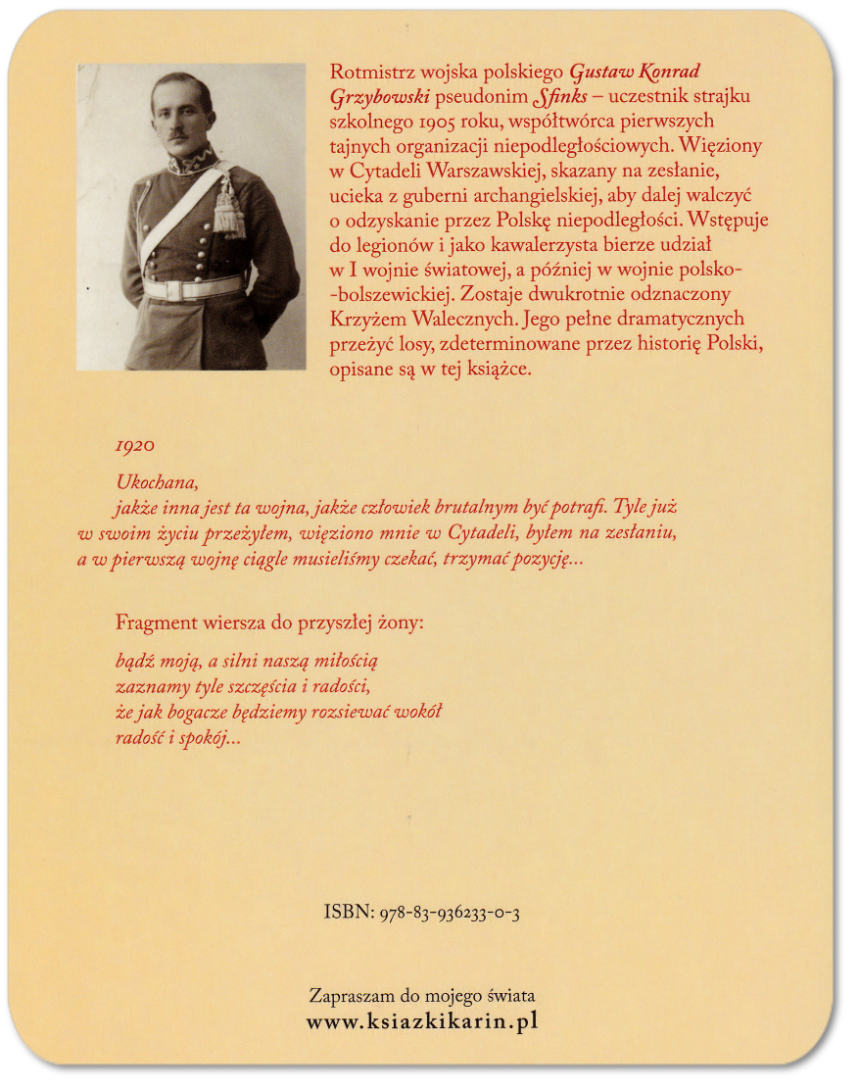 Rotmistrz wojska polskiego Gustaw Konrad
Grzybowski pseudonim Sfinks – uczestnik strajku
szkolnego 1905 roku, współtwórca pierwszych
tajnych organizacji niepodległościowych. Więziony
w Cytadeli Warszawskiej, skazany na zesłanie,
ucieka z guberni archangielskiej, aby dalej walczyć
o odzyskanie przez Polskę niepodległości. Wstępuje
do legionów i jako kawalerzysta bierze udział
w I wojnie światowej, a później w wojnie polsko-
-bolszewickiej. Zostaje dwukrotnie odznaczony
Krzyżem Walecznych. Jego pełne dramatycznych
przeżyć losy, zdeterminowane przez historię Polski,
opisane są w tej książce.
1920
Ukochana,
jakże inna jest ta wojna, jakże człowiek brutalnym być potrafi. Tyle już
w swoim życiu przeżyłem, więziono mnie w Cytadeli, byłem na zesłaniu,
a w pierwszą wojnę ciągle musieliśmy czekać, trzymać pozycję...
Fragment wiersza do przyszłej żony:
bądź moją, a silni naszą miłością
zaznamy tyle szczęścia i radości,
że jak bogacze będziemy rozsiewać wokół
radość i spokój...
ISBN: 978-83-936233-0-3
Zapraszam do mojego świata
www.ksiazkikarin.pl